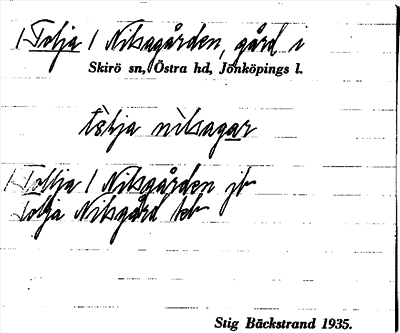 / Tolja / Nilsagården, gård i
Skirö sn, Östra hd, Jönköpings l.
tòlja nìlsagar
/ Tolja / Nilsgården jb
Tolja Nilsgård
Stig Bäckstrand 1935.